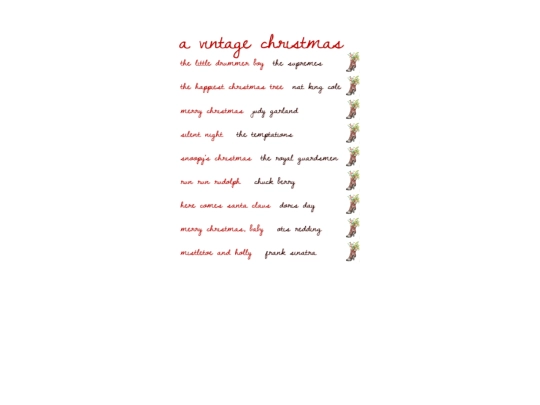 a vintage christmas
the little drummer boy the supremes
the happiest christmas tree nat king cole
merry christmas judy garland
silent night the temptations
snoopy's christmas the royal guardsmen
run run rudolph chuck berry
here comes santa claus doris day
merry christmas, baby otis redding
mistletoe and holly frank sinatra